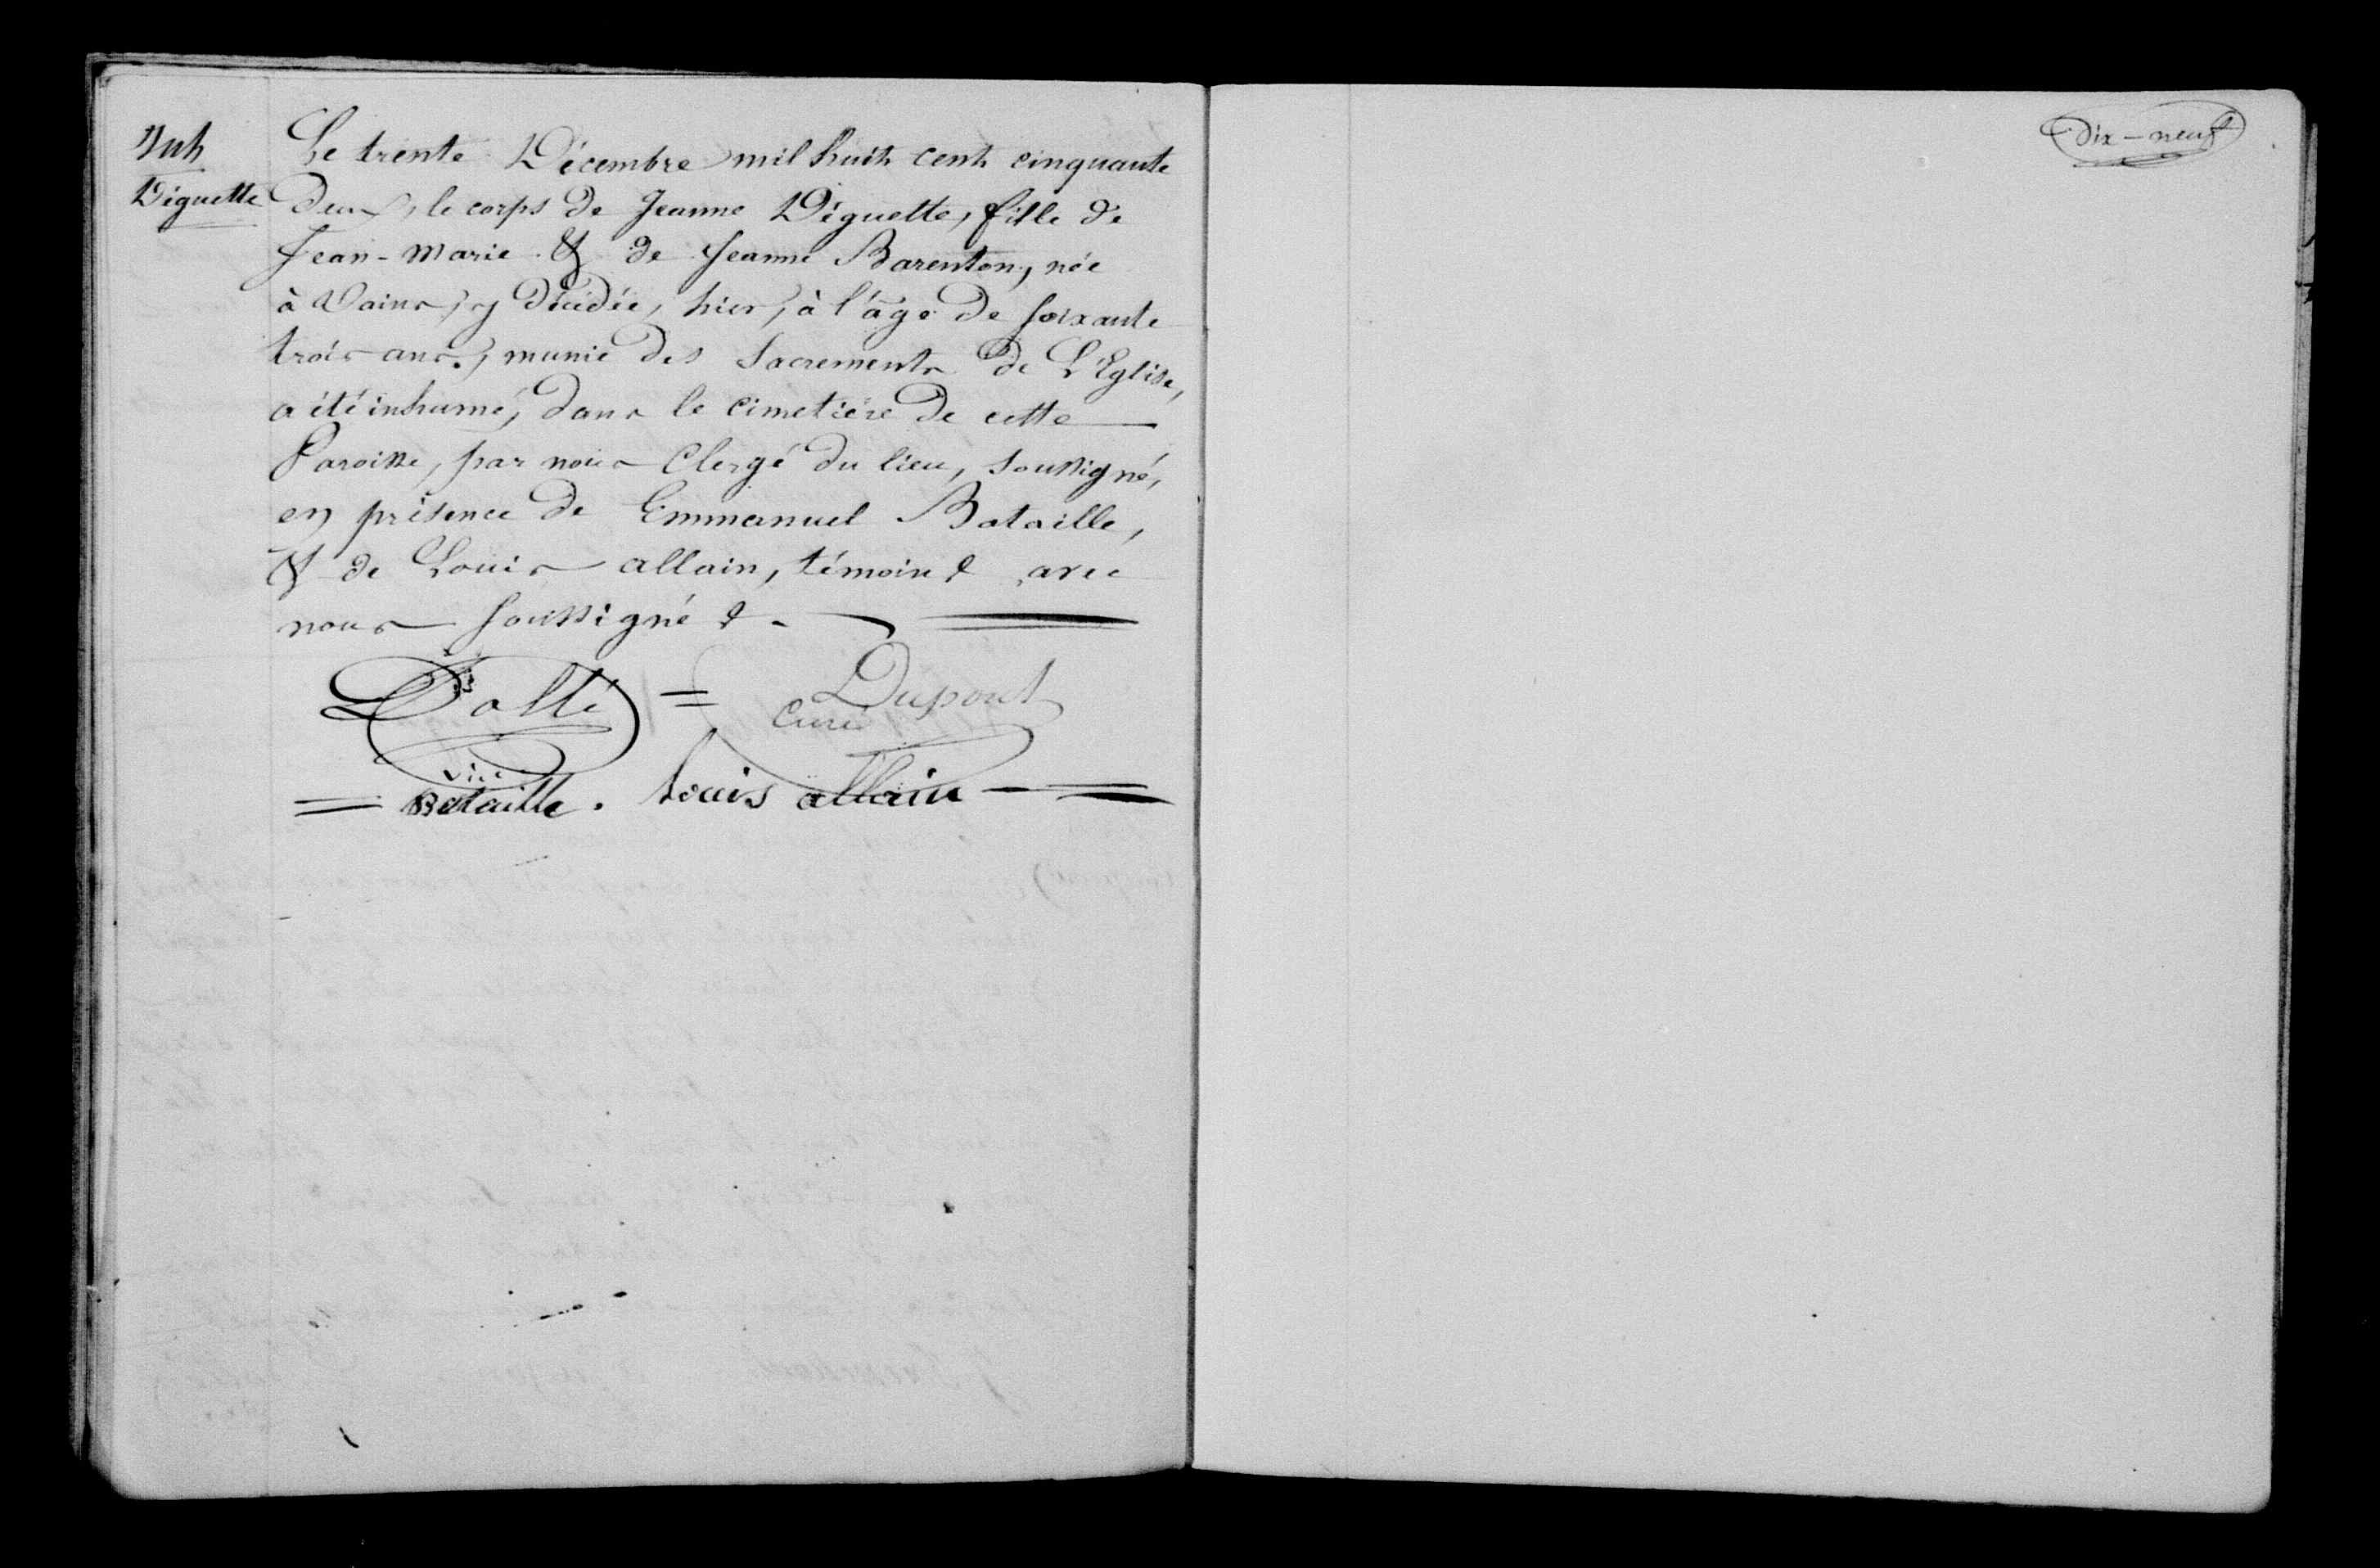 Inh
Diguette
Le trente Décembre mil huit cent cinquante
deux, le corps de Jeanne Diguette, fille de
Jean-Marie & de Jeanne Barenton, née
à Vains, y décédée, hier, à l'âge de soixante
trois ans, munie des Sacrements de L'Eglise,
a été inhumé, dans le cimetière de cette
Paroisse, par nous Clergé du lieu, soussigné,
en présence de Emmanuel Bataille,
& de Louis allain, témoins avec
nous soussignés.
Dupont
Curé
vic
Bataille. Louis allain
Dix-neuf